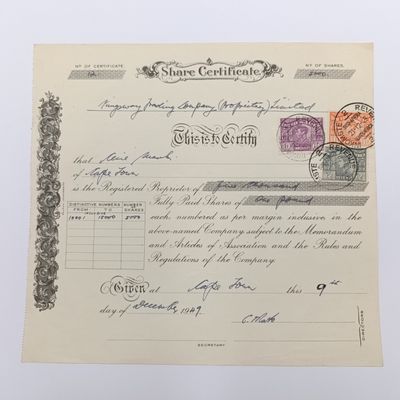 Nº OF CERTIFICATE.
12
Share Certificate
Nº OF SHARES.
5000
Kingsway Trading Company (Proprietary) Limited
This is to Certify
that
of Cape Town
is the Registered Proprietor of five thousand
Fully Paid Shares of one pound
each numbered as per margin inclusive in the
above-named Company subject to the Memorandum
and Articles of Association and the Rules and
Regulations of the Company.
DISTINCTIVE NUMBERS
NUMBER OF
FROM TO
SHARES
INCLUSIVE
10001 15000 5000
REVENUE
REVENUE
Given at Cape Town this 9th
day of December 1949
DIRECTORS
SECRETARY